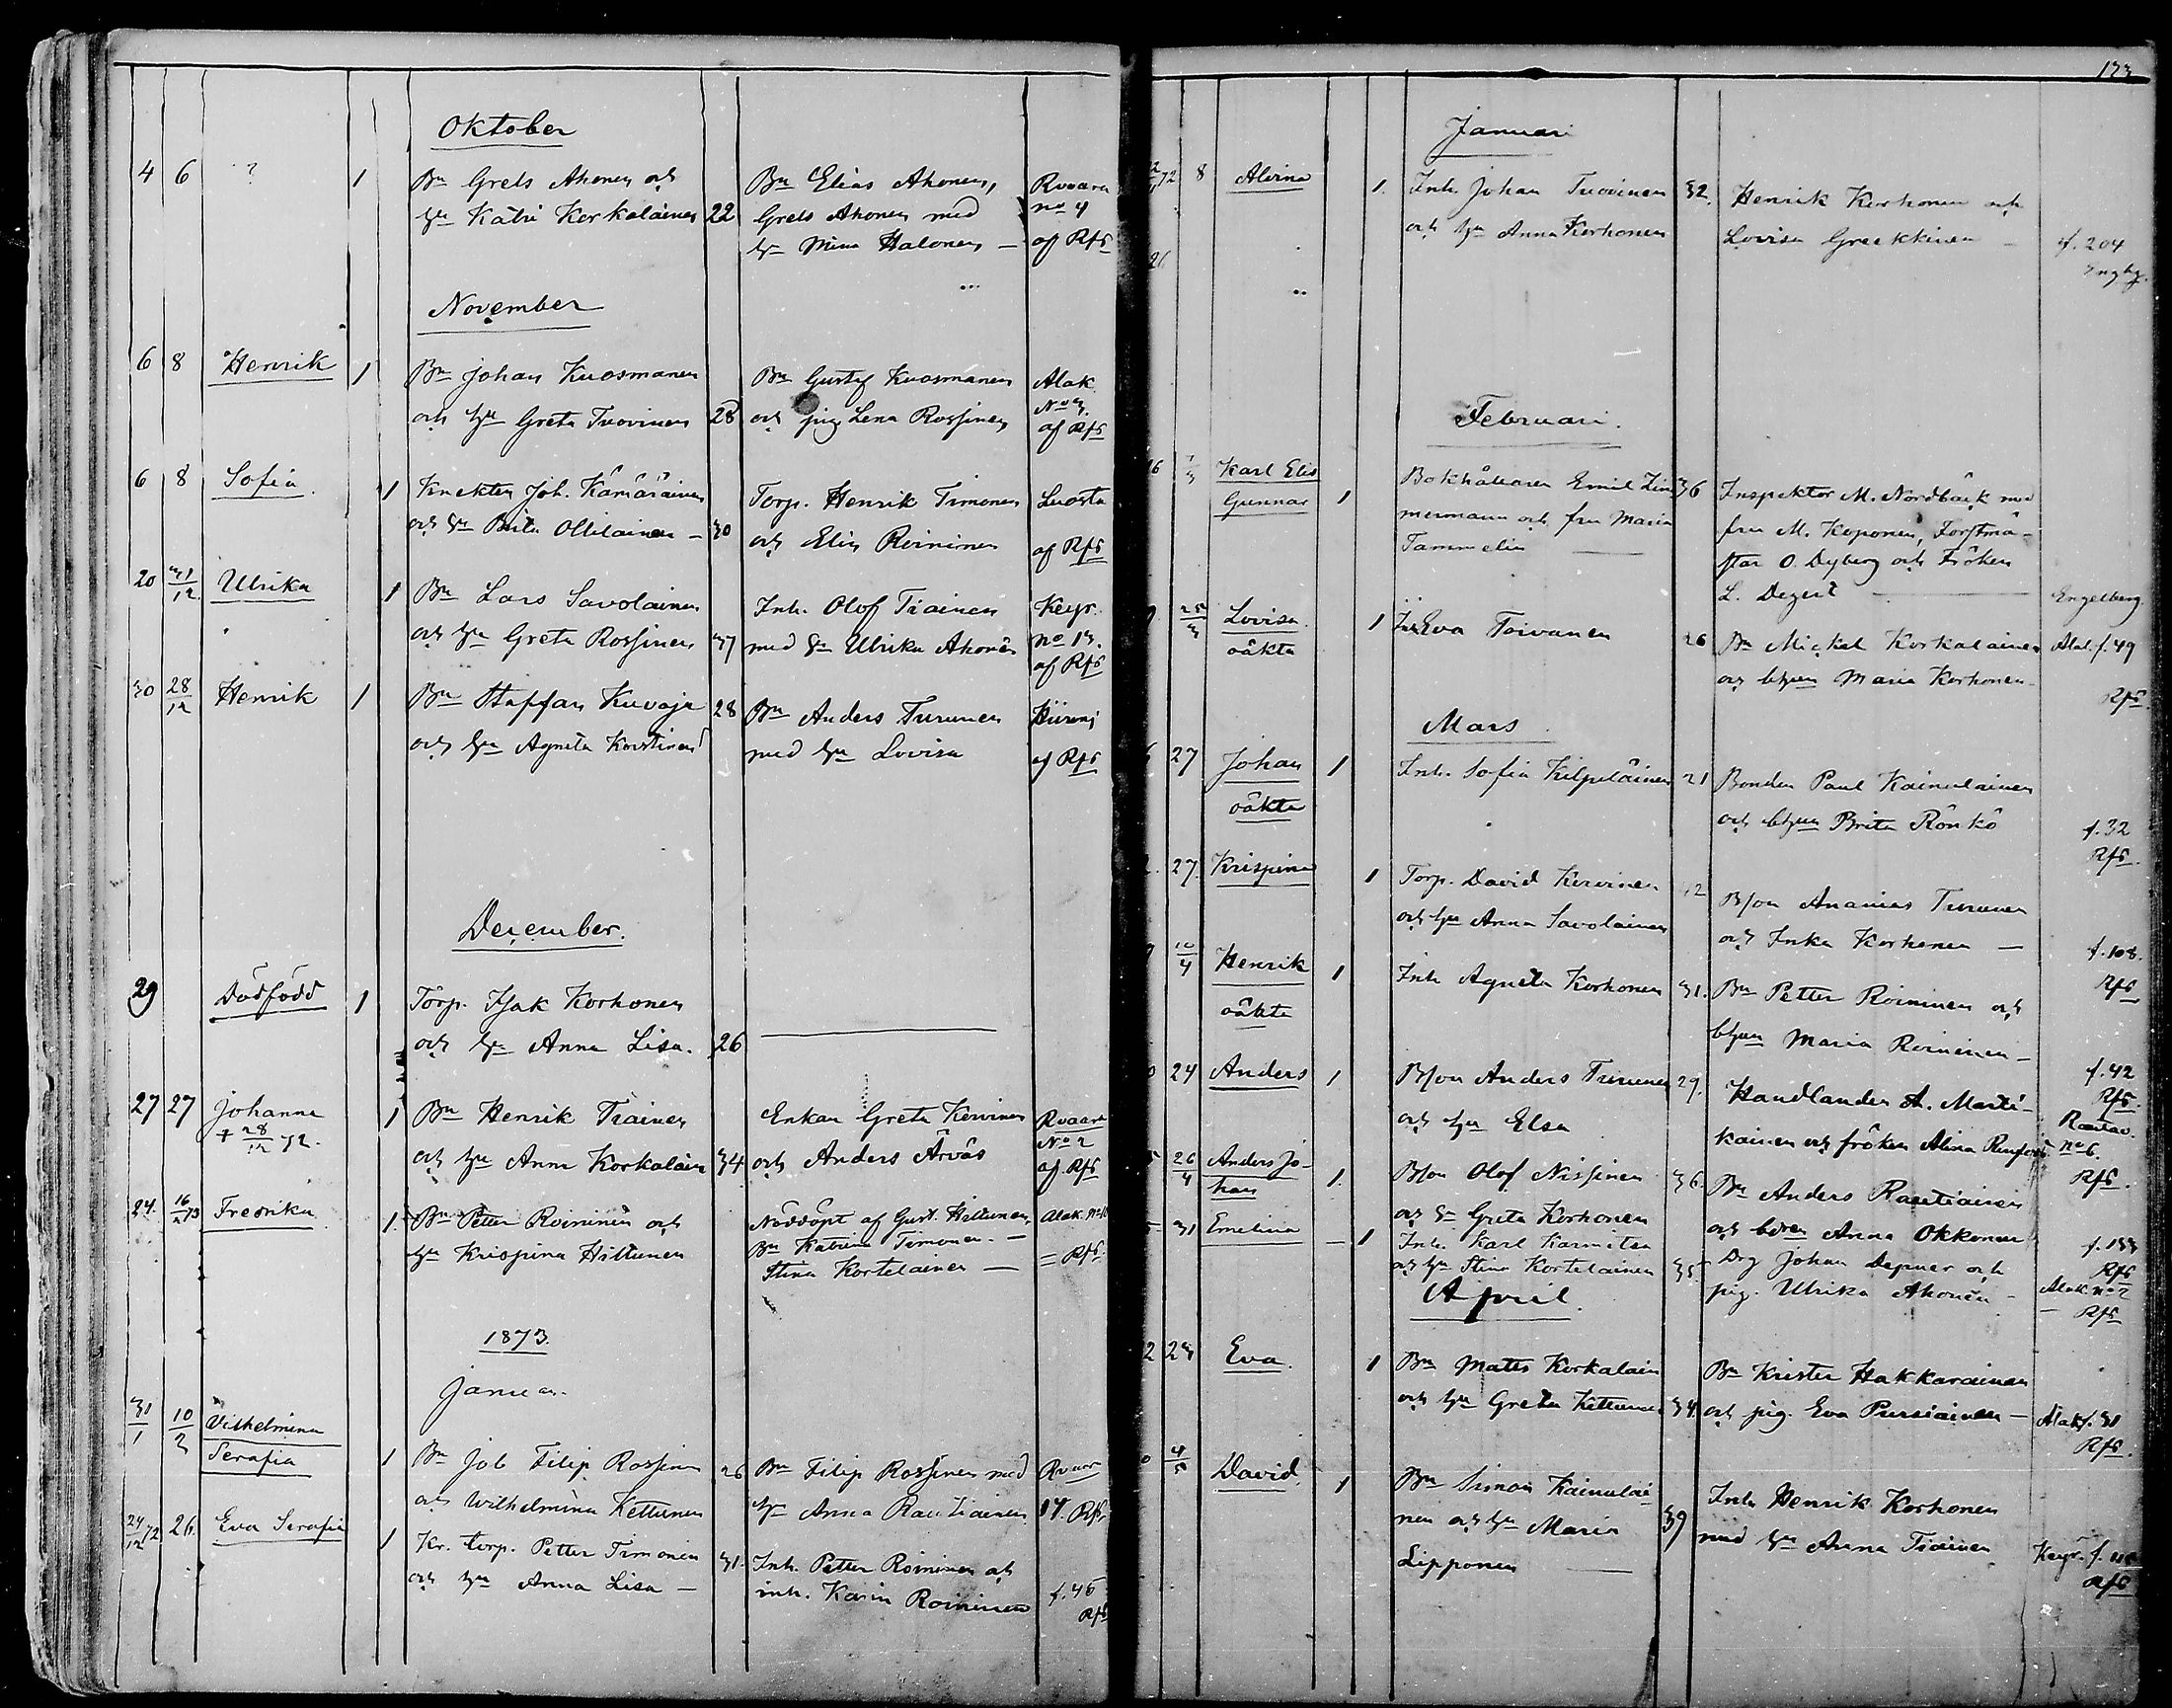 Oktober
4 6 ? 1 Bn Grels Ahonen och Bn Elias Ahonen, Rvaara
hu Katri Korkalainen 22 Grels Ahonen med no 4
hu Mina Halonen — af Rfs
November
6 8 Henrik 1 Bn Johan Kuosmanen Bn Gustaf Kuosmanen Alak.
och hu Greta Tuovinen 28 och pig Lena Rossinen No 3.
af Rfs
6 8 Sofia. 1 Knekten Joh. Kämäräinen Torp. Henrik Timonen Luosta
och hu Brita Ollilainen — 30 och Elin Roininen af Rfs
20 31/12 Ulrika 1 Bn Lars Savolainen Inh. Olof Tiainen Keyr.
och hu Greta Rossinen 37 med hu Ulrika Ahonen no 13.
af Rfs
30 28/12 Henrik 1 Bn Staffan Kuvaja 28 Bn Anders Turunen
och hu Agneta Korstinen med hu Lovisa af Rfs
December.
29 Dödfödd 1 Torp. Isak Korhonen
och hu Anna Lisa. 26
27 27 Johanna 1 Bn Henrik Tiainen Enkan Greta Kervinen Rvaara
+ 28/12 72. och hu Anna Korkalain 34 och Anders Ärväs No 2
af Rfs
24. 16/2 73 Fredrika 1. Bn Petter Roininen och Nöddöpt af Gust. Hiltunen, Alak. No 10
hu Krispina Hiltunen Bn Katrina Timonen. — = Rfs.
Stina Kortelainen —
1873.
Januar.
31/1 10/2 Vilhelmina
Serafia 1 Bn Job Filip Rossinen 26 Bn Filip Rossinen med Rvaar
och Wilhelmina Kettunen hu Anna Rautiainen 14. Rfs
24/12 72 26. Eva Serafia 1 Kr. torp. Petter Timonen 31. Inh. Petter Roininen och
och hu Anna Lisa — inh. Karin Roininen f. 46
Rfs
123
Januari
8 Alvina 1. Inh. Johan Tuovinen 32. Henrik Korhonen och
och hu Anna Korhonen Lovisa Greckkinen — f. 204
Februari.
16 Karl Elis Bokhållaren Emil Zim 36 Inspektor M. Nordbäck med
Gunnar 1 mermann och fru Maria fru M. Koponen, Forstmä-
Tammelin — star O. Dyberg och Fröken
L. Degert — Engelberg.
25/3 Lovisa. 1 Inh. Eva Toivanen 26 Bn Mickel Korkalainen Alak. f. 49
oäkta och hustru Maria Korhonen — Rfs
Mars.
27 Johan 1 Inh. Sofia Kilpeläinen 21 Bonden Paul Kainulainen
oäkta och hustru Brita Rönkö f. 32
Rfs.
27. Krispina 1 Torp. David Kervinen B/on Ananias Turunen
och hu Anna Savolainen och Inka Korhonen — f. 108.
Rfs
Henrik 1 Inh Agneta Korhonen 31. Bn Petter Roininen och
oäkta hustru Maria Roininen — f. 42
Rfs.
24 Anders 1 B/on Anders Turunen 29. Handlanden A. Marti-
och hu Elsa kainen och fröken Alina no 6.
Rfs.
26/4 Anders Jo-
han 1. B/on Olof Nissinen 36. Bn Anders Rautiainen
och hu Greta Korhonen och hustrun Anna Okkonen f. 133
Rfs
31 Emelina — 1 Inh. Karl Karmiten Drg Johan Depner och
och hu Stina Kortelainen 35 pig. Ulrika Ahonen — Alak. no 2
— Rfs
April.
23 Eva. 1 Bn Matts Korkalain Bn Krister Hakkarainen
och hu Greta Kettunen 34. och pig. Eva Pursiainen — Alak f. 31
Rfs.
4/5 David. 1 Bn Simon Kainulai- Inh Henrik Korhonen
nen och hu Maria 39 med hu Anna Tiainen
Lipponen — Keyr. f.
Rfs